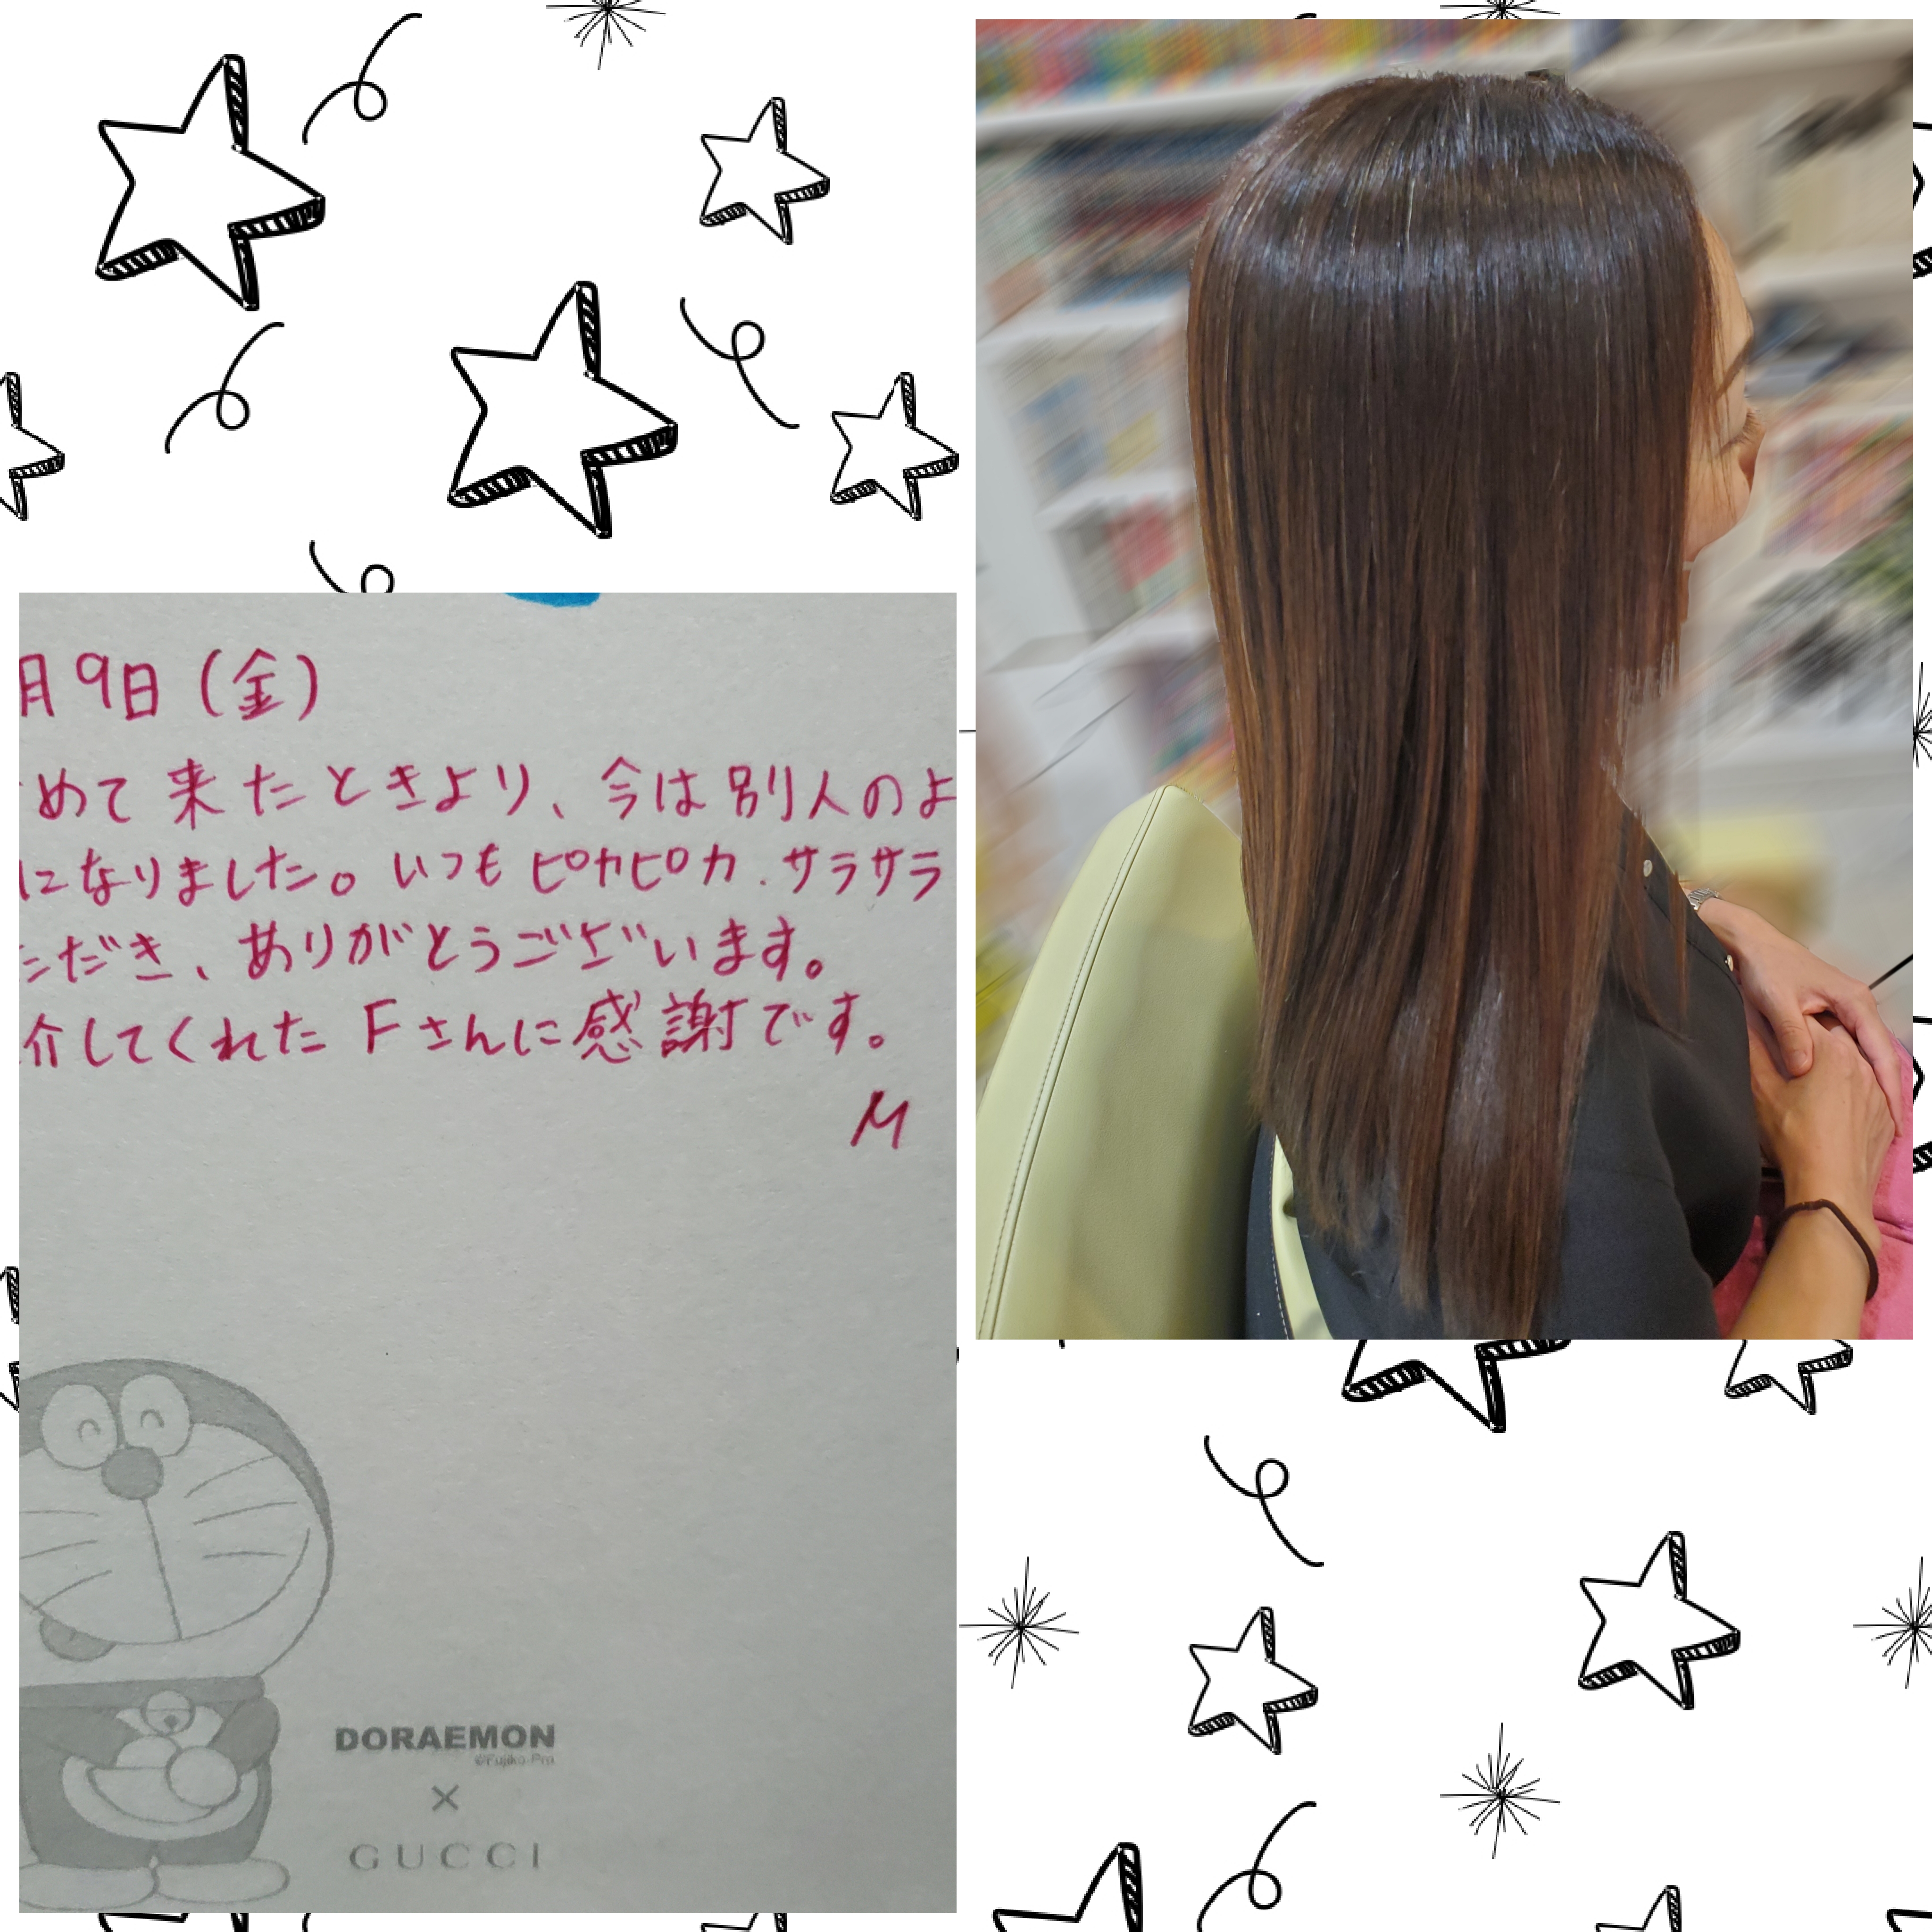 月9日(金)
めて来たときより、今は別人のよ
になりました。いつもピカピカ.サラサラ
ただき、ありがとうございます。
介してくれたFさんに感謝です。
M
DORAEMON
©Fujiko-Pro
×
GUCCI